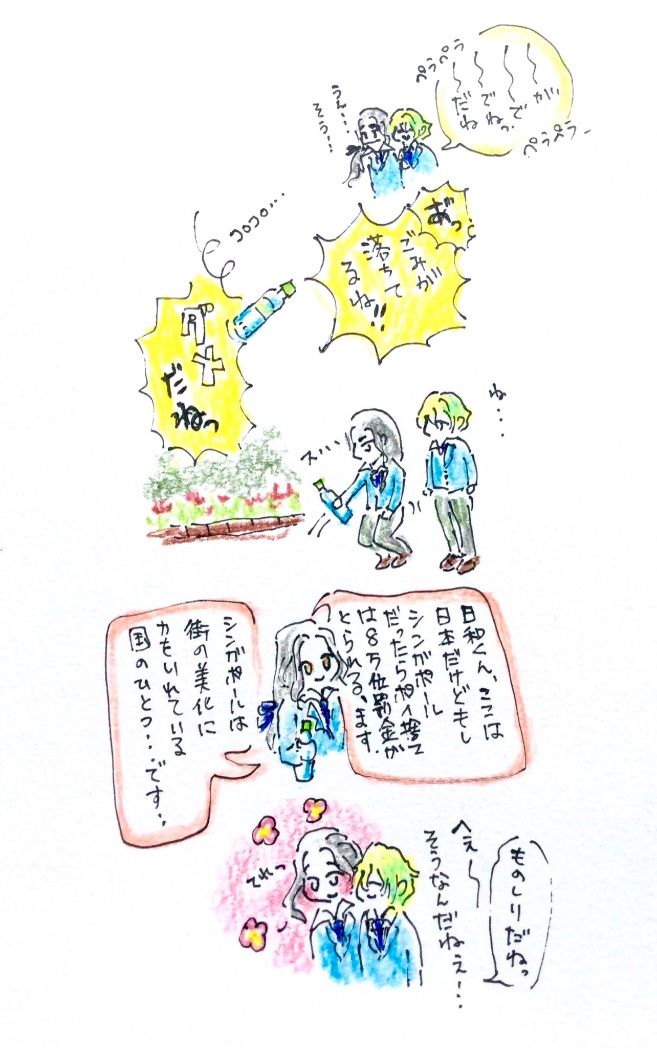 ペラペラ
〜〜が
〜〜で
〜でねっ
〜だね
ペラペラー
うん…
そう…
あ゛っ
ごみが
落ちて
るね!!
コロコロ…
ダメ
だねっ
ね…
ス…
日和くん、ここは
日本だけどもし
シンガポール
だったらポイ捨て
は8万位罰金が
とられる、ます
シンガポールは
街の美化に
力もいれている
国のひとつ…です…
ものしりだねっ
へぇー
そうなんだねぇー…
でれっ